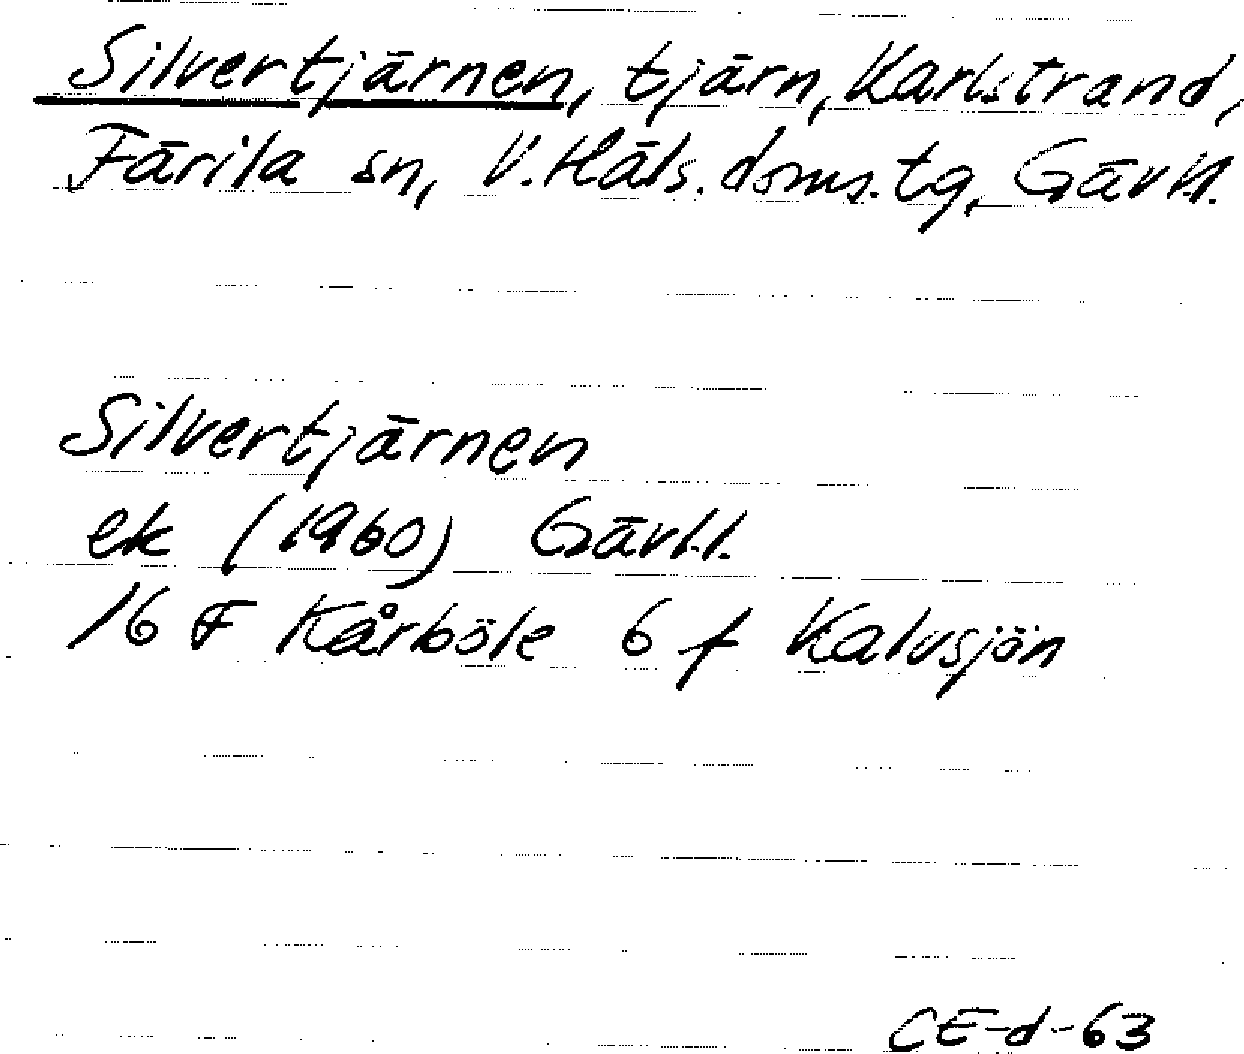 Silvertjärnen, tjärn, Karlstrand,
Färila sn, V. Häls. doms. tg, Gävl.l.
Silvertjärnen
ek (1960) Gävl.l.
16 F Kårböle 6 f Kalvsjön
CE-d-63